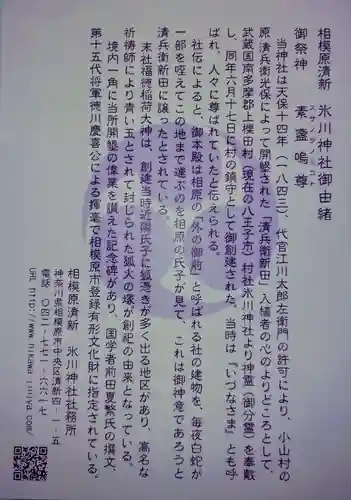 相模原清新 氷川神社御由緒
御祭神 素盞嗚尊
スサノオノミコト
当神社は天保十四年（一八四三）、代官江川太郎左衛門の許可により、小山村の
原清兵衛光保によって開墾された「清兵衛新田」入植者の心のよりどころとして、
武蔵国南多摩郡上椚田村（現在の八王子市）村社氷川神社より神霊（御分霊）を奉戴
し、同年六月十七日に村の鎮守として御創建された。当時は「いづなさま」とも呼
ばれ、人々に尊ばれていたと伝えられる。
社伝によると、御本殿は相原の「外の御前」と呼ばれる社の建物を、毎夜白蛇が
一部を咥えてこの地まで運ぶのを相原の氏子が見て、これは御神意であろうと
清兵衛新田に譲ったとされている。
末社福徳稲荷大神は、創建当時近隣氏子に狐憑きが多く出る地区があり、高名な
祈祷師により青い玉とされて封じられた狐火の塚が創祀の由来となっている。
境内一角に当所開墾の偉業を讃えた記念碑があり、国学者前田夏繁氏の撰文、
第十五代将軍徳川慶喜公による揮毫で相模原市登録有形文化財に指定されている。
相模原清新 氷川神社社務所
神奈川県相模原市中央区清新四-一-五
電話 〇四二-七七一-六六一七
URL http://www.hikawa-jinjya.com/